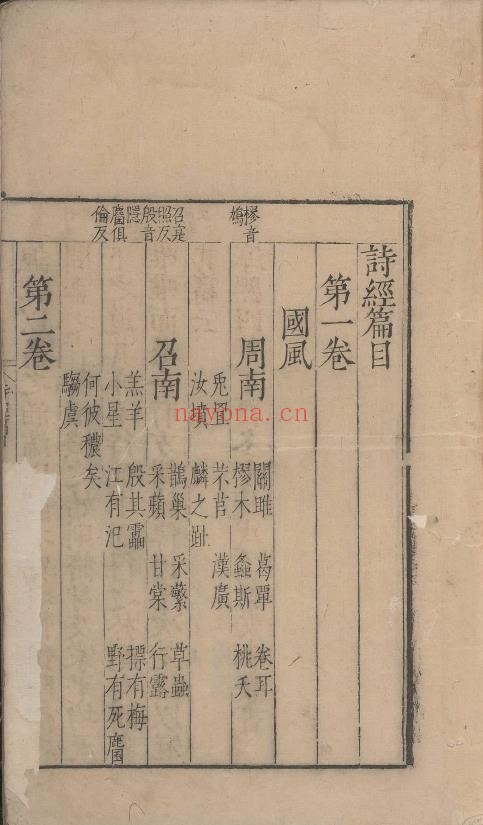 樛音
鳩
召寔
照反
殷音
隱
麕俱
倫反
詩經篇目
第一卷
國風
周南
關雎 葛覃 卷耳
樛木 螽斯 桃夭
兎罝 芣苢 漢廣
汝墳 麟之趾
召南
鵲巢 采蘩 草蟲
采蘋 甘棠 行露
羔羊 殷其靁 摽有梅
小星 江有汜 野有死麕
何彼穠矣
騶虞
第二卷
nayona.cn.com